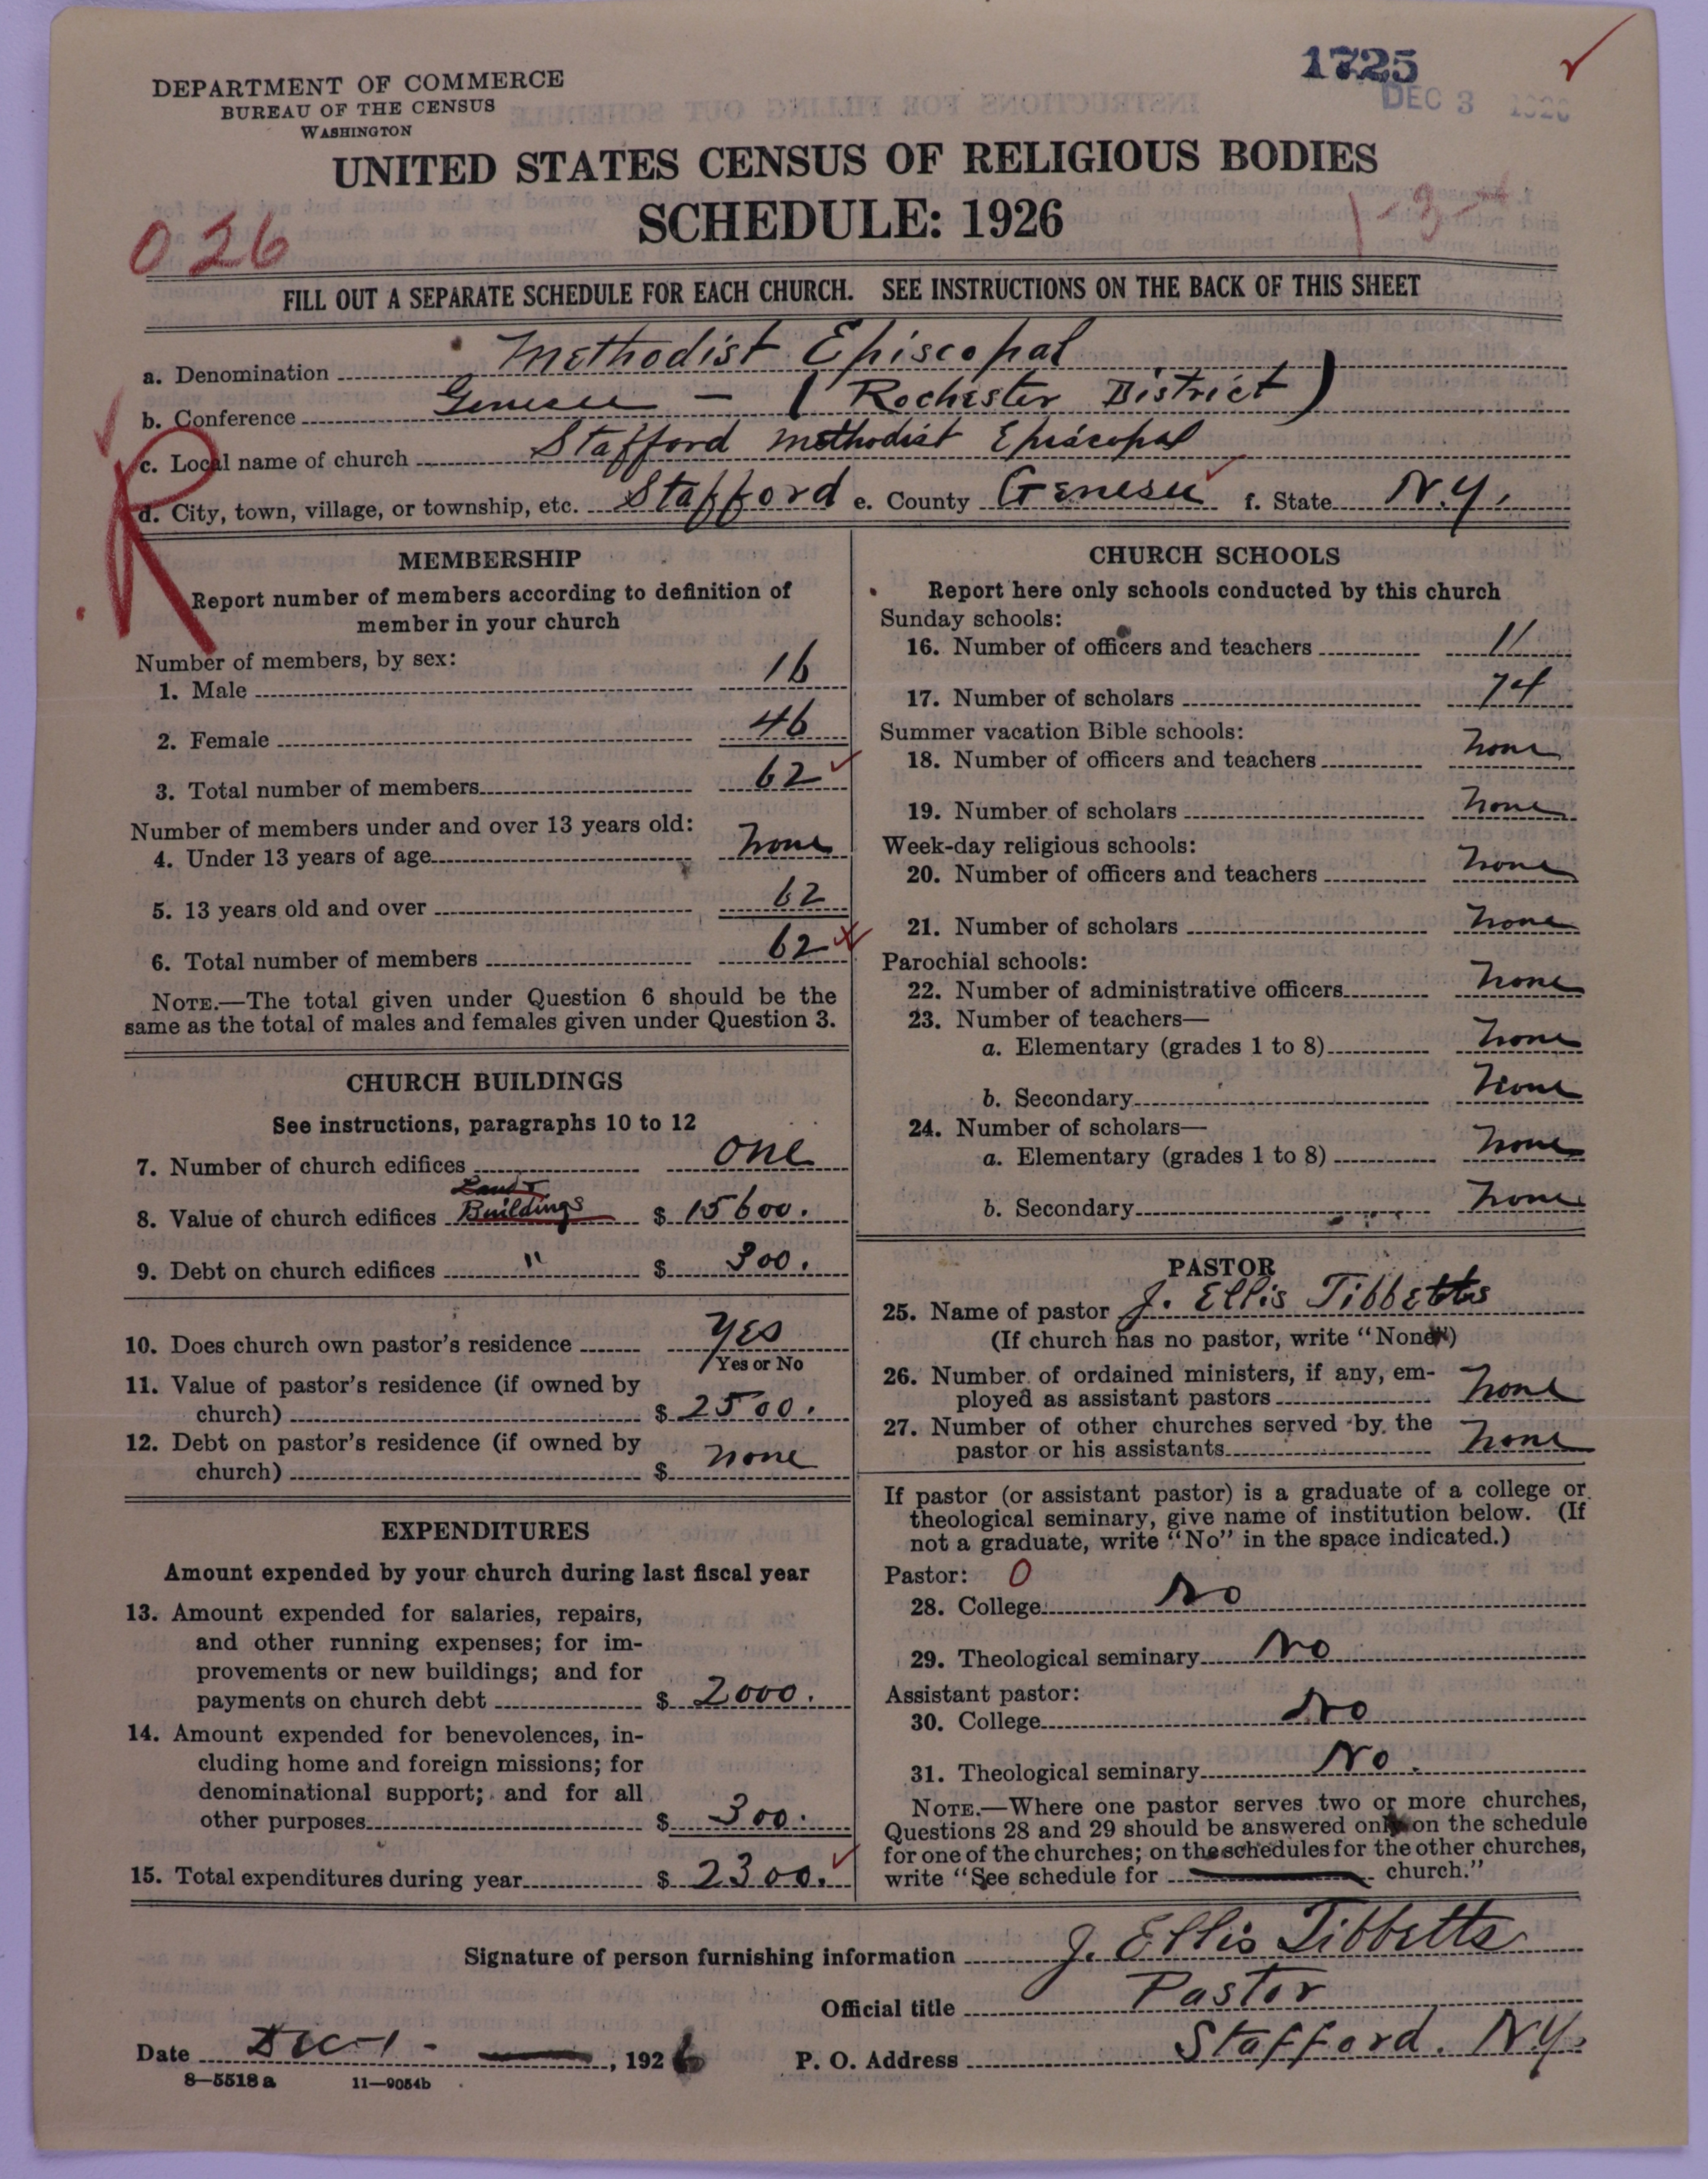 1725
DEC 3 1926
DEPARTMENT OF COMMERCE
BUREAU OF THE CENSUS
WASHINGTON
UNITED STATES CENSUS OF RELIGIOUS BODIES
SCHEDULE: 1926
026
1-3-4
FILL OUT A SEPARATE SCHEDULE FOR EACH CHURCH. SEE INSTRUCTIONS ON THE BACK OF THIS SHEET
a. Denomination Methodist Episcopal
b. Conference Genesee - (Rochester District)
c. Local name of church Stafford Methodist Episcopal
d. City, town, village, or township, etc. Stafford e. County Genesee f. State N.Y.
R
MEMBERSHIP
Report number of members according to definition of
member in your church
Number of members, by sex:
1. Male 16
2. Female 46
3. Total number of members 62
Number of members under and over 13 years old:
4. Under 13 years of age none
5. 13 years old and over 62
6. Total number of members 62
NOTE.—The total given under Question 6 should be the
same as the total of males and females given under Question 3.
CHURCH BUILDINGS
See instructions, paragraphs 10 to 12
7. Number of church edifices one
Land &
8. Value of church edifices Buildings $ 15600.
9. Debt on church edifices " $ 300.
10. Does church own pastor's residence Yes
Yes or No
11. Value of pastor's residence (if owned by
church) $ 2500.
12. Debt on pastor's residence (if owned by
church) $ none
EXPENDITURES
Amount expended by your church during last fiscal year
13. Amount expended for salaries, repairs,
and other running expenses; for im-
provements or new buildings; and for
payments on church debt $ 2000.
14. Amount expended for benevolences, in-
cluding home and foreign missions; for
denominational support; and for all
other purposes $ 300.
15. Total expenditures during year $ 2300.
CHURCH SCHOOLS
Report here only schools conducted by this church
Sunday schools:
16. Number of officers and teachers 11
17. Number of scholars 74
Summer vacation Bible schools:
18. Number of officers and teachers none
19. Number of scholars none
Week-day religious schools:
20. Number of officers and teachers none
21. Number of scholars none
Parochial schools:
22. Number of administrative officers none
23. Number of teachers—
a. Elementary (grades 1 to 8) none
b. Secondary none
24. Number of scholars—
a. Elementary (grades 1 to 8) none
b. Secondary none
PASTOR
25. Name of pastor J. Ellis Tibbetts
(If church has no pastor, write "None")
26. Number of ordained ministers, if any, em-
ployed as assistant pastors none
27. Number of other churches served by the
pastor or his assistants none
If pastor (or assistant pastor) is a graduate of a college or
theological seminary, give name of institution below. (If
not a graduate, write "No" in the space indicated.)
Pastor: 0
28. College No
29. Theological seminary No
Assistant pastor:
30. College No
31. Theological seminary No.
NOTE.—Where one pastor serves two or more churches,
Questions 28 and 29 should be answered only on the schedule
for one of the churches; on the schedules for the other churches,
write "See schedule for church."
Signature of person furnishing information J. Ellis Tibbetts
Official title Pastor
Date Dec-1-, 1926 P. O. Address Stafford. N.Y.
8—5518 a 11—9054b